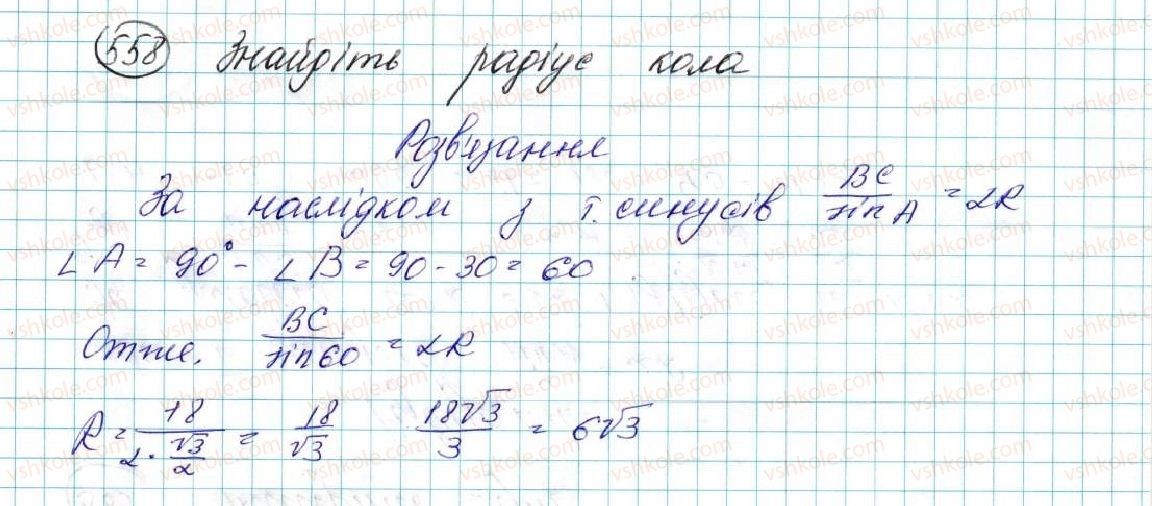 558 Знайдіть радіус кола
Розв'язання
За наслідком з т. синусів BC/sin A = 2R
∠A = 90° - ∠B = 90 - 30 = 60
Отже, BC/sin 60 = 2R
R = 18/(2·√3/2) = 18/√3 18√3/3 = 6√3